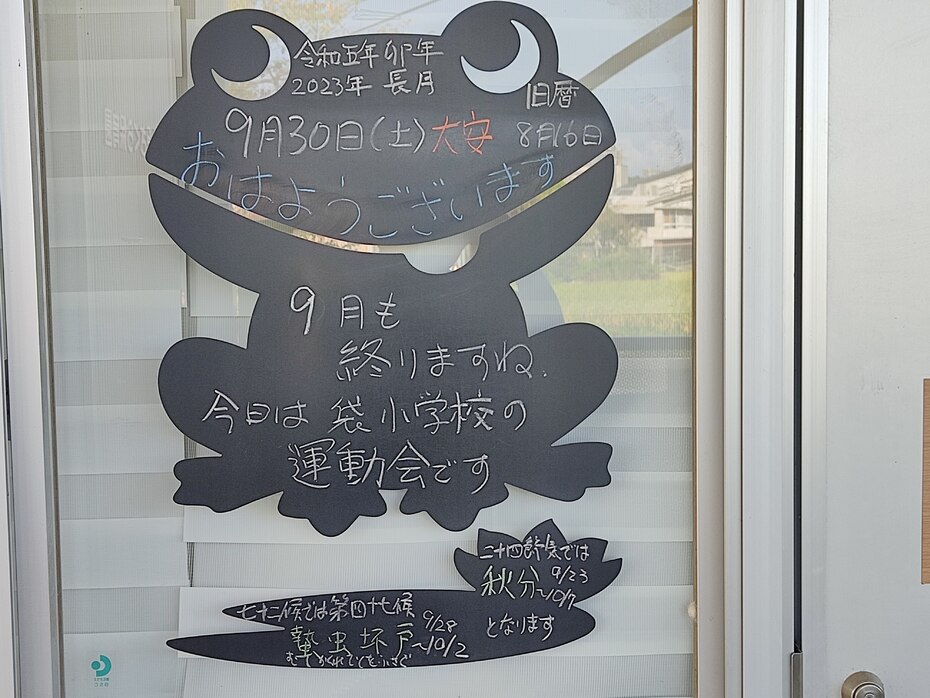 令和五年 卯年
2023年 長月
旧暦
9月30日(土)大安 8月16日
おはようございます
9月も
終りますね.
今日は 袋小学校の
運動会です
二十四節気では
秋分 9/23~10/7
となります
七十二候では第四十七候
蟄虫坏戸 9/28~10/2
むしかくれてとをふさぐ